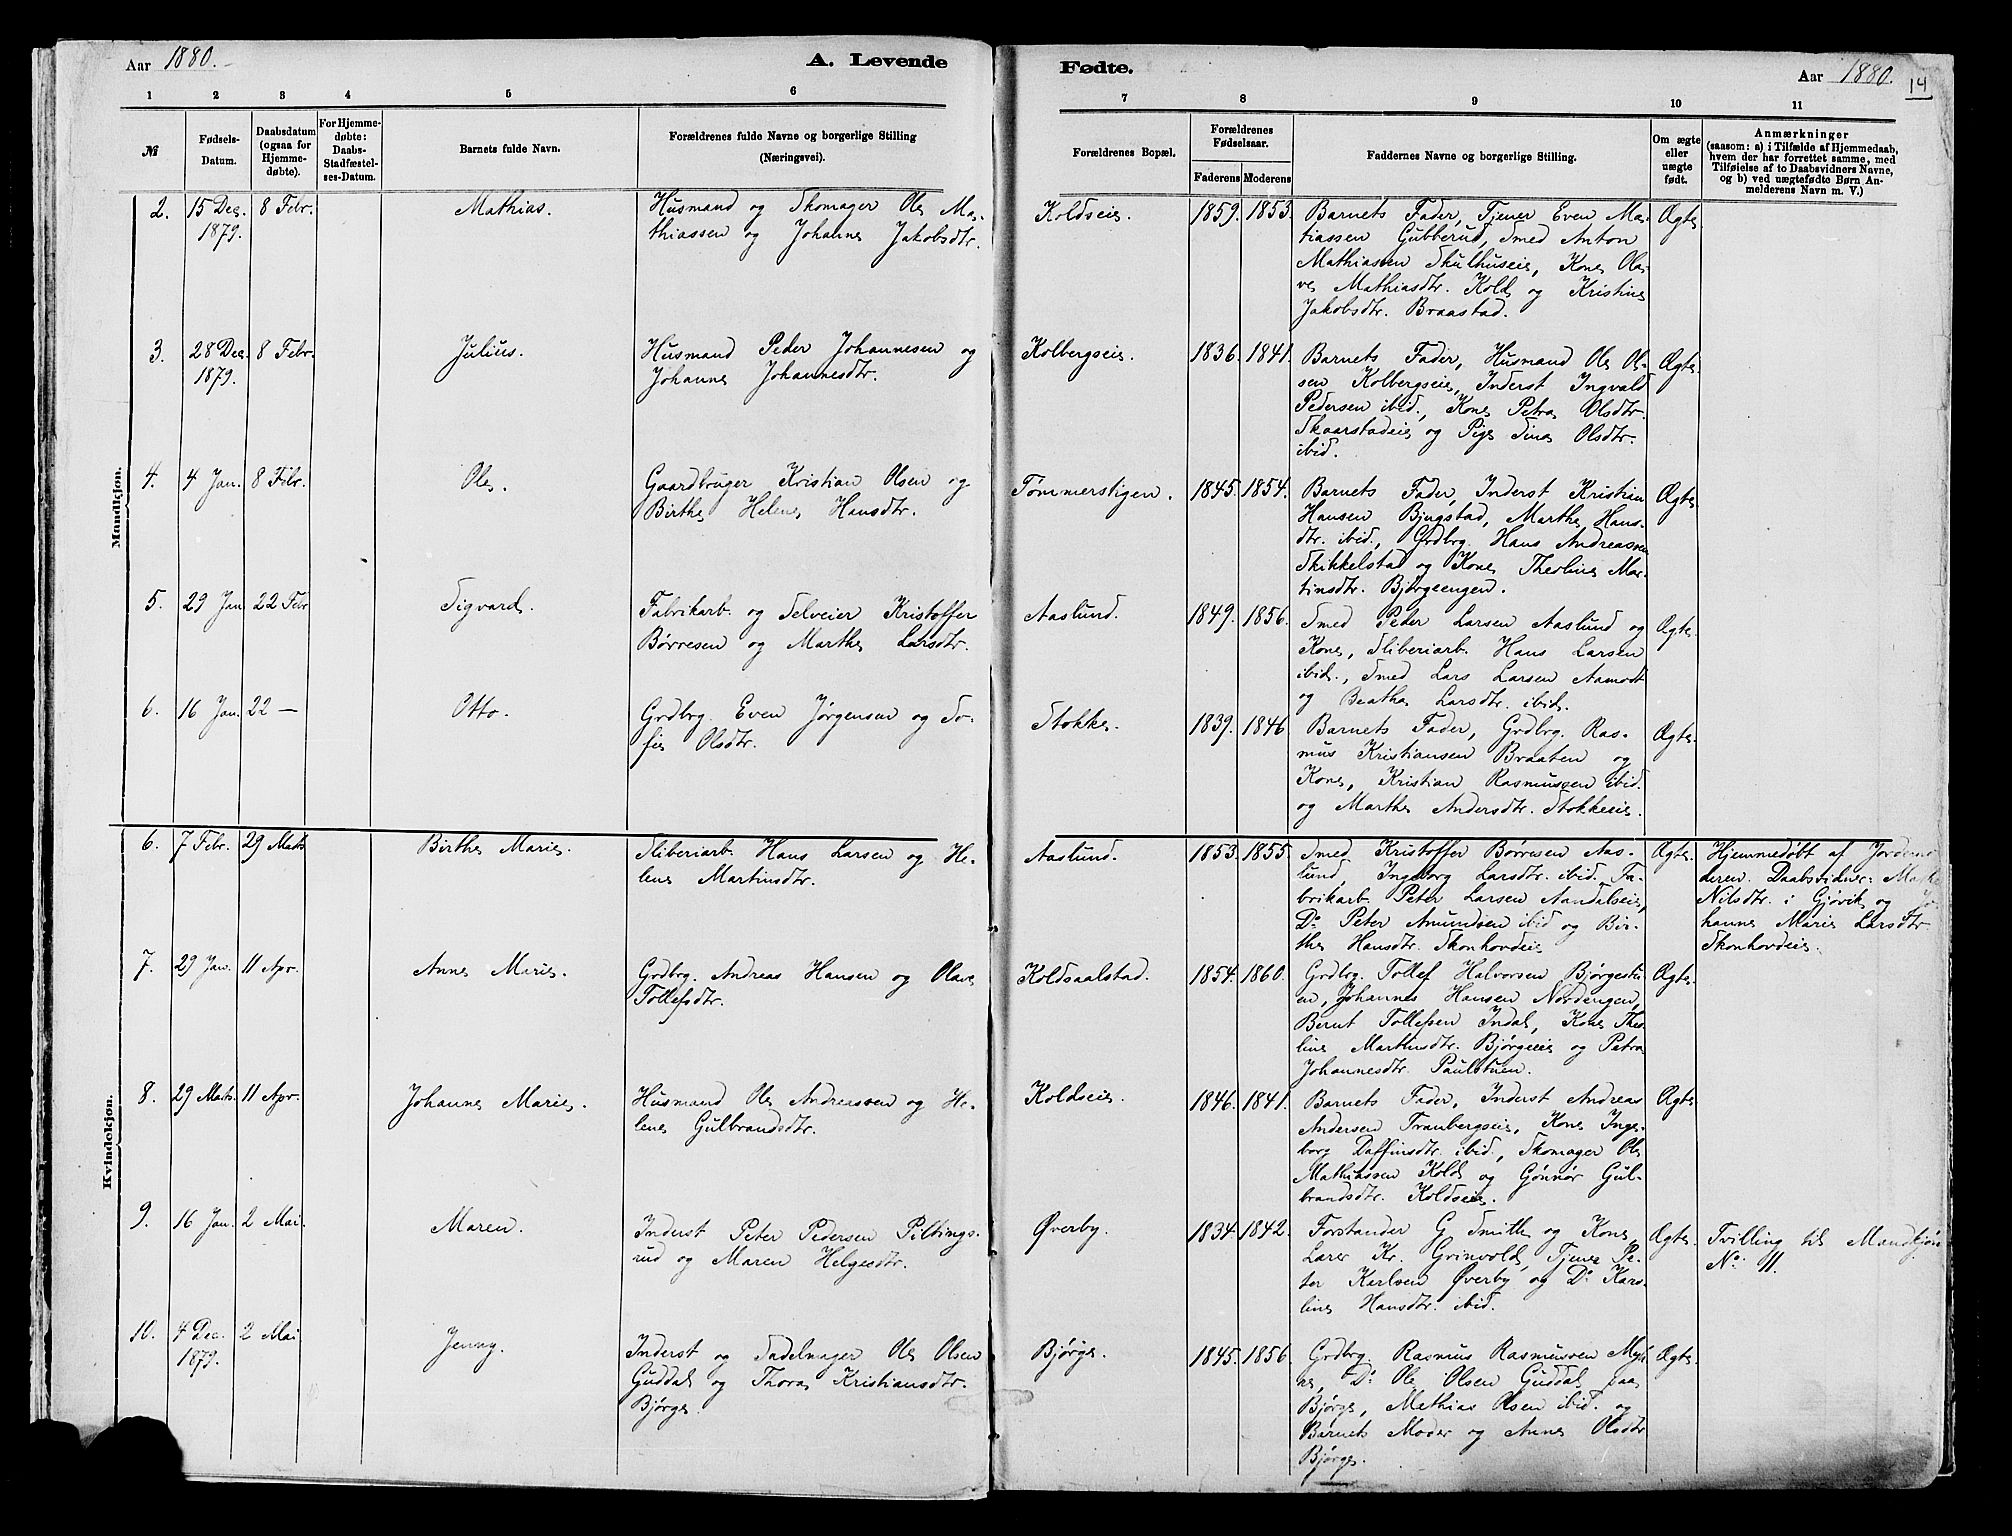 Aar 1880.
A. Levende
Fødte.
Aar 1880.
14
1 2 3 4 5 6
7 8 9 10 11
№
Fødsels-
Datum.
Daabsdatum
(ogsaa for
Hjemme-
døbte).
For Hjemme-
døbte:
Daabs-
Stadfæstel-
ses-Datum.
Barnets fulde Navn.
Forældrenes fulde Navne og borgerlige Stilling
(Næringsvei).
Forældrenes Bopæl.
Forældrenes
Fødselsaar.
Faderens Moderens
Faddernes Navne og borgerlige Stilling.
Om ægte
eller
uægte
født.
Anmærkninger
(saasom: a) i Tilfælde af Hjemmedaab,
hvem der har forrettet samme, med
Tilføielse af to Daabsvidners Navne,
og b) ved uægtefødte Børn An-
melderens Navn m. V.)
Mandkjøn.
2.
15 Dec.
1879.
8 Febr.
Mathias.
Husmand og Skomager Ole Ma-
thiassen og Johanne Jakobsdtr.
Koldseie.
1859. 1853.
Barnets Fader, Tjener Even Ma-
tiassen Gubberud, Smed Anton
Mathiassen Skulhuseie, Kone Ola-
ve Mathiasdtr. Kold og Kristine
Jakobsdtr. Braastad.
Ægte
3.
28 Dec.
1879.
8 Febr.
Julius.
Husmand Peder Johannesen og
Johanne Johannesdtr.
Kolbergseie.
1836. 1841.
Barnets Fader, Husmand Ole Ol-
sen Kolbergseie, Inderst Ingvald
Pedersen ibid., Kone Petra Olsdtr.
Skaarstadeie og Pige Sina Olsdtr.
ibid.
Ægte
4.
4 Jan.
8 Febr.
Ole.
Gaardbruger Kristian Olsen og
Birthe Helene Hansdtr.
Tømmerstigen.
1845. 1854.
Barnets Fader, Inderst Kristian
Hansen Bjugstad, Marthe Hans-
dtr. ibid., Grdbrg. Hans Andreassen
Skikkelstad og Kone Theoline Mar-
tinsdtr. Bjørgeengen.
Ægte
5.
29 Jan
22 Febr
Sigvard.
Fabrikarb. og Selveier Kristoffer
Børresen og Marthe Larsdtr.
Aaslund.
1849. 1856.
Smed Peder Larsen Aaslund og
Kone, Sliberiarb. Hans Larsen
ibid., Smed Lars Larsen Aamodt
og Beatha Larsdtr. ibid.
Ægte
6.
16 Jan.
22 —
Otto.
Grdbrg. Even Jørgensen og So-
fie Olsdtr.
Stokke.
1839. 1846
Barnets Fader, Grdbrg. Ras-
mus Kristiansen Braaten og
Kone, Kristian Rasmussen ibid.
og Marthe Andersdtr. Stokkeeie.
Ægte.
Kvindekjøn.
6.
7 Febr.
29 Marts
Birthe Marie.
Sliberiarb. Hans Larsen og He-
lene Martinsdtr.
Aaslund.
1853. 1855.
Smed Kristoffer Børresen Aas-
lund, Ingeborg Larsdtr. ibid. Fa-
brikarb. Peter Larsen Aandalseie,
Do Peter Amundsen ibid og Bir-
the Hansdtr. Skonhovdeie
Ægte.
Hjemmedøbt af Jordemo
deren. Daabsvidner:
Nilsdtr. i Gjøvik og Jo
hanne Marie Larsdtr
Skonhovdeie.
7.
29 Jan.
11 Apr.
Anne Marie.
Grdbrg. Andreas Hansen og Olave
Tollefsdtr.
Koldsaalstad.
1854. 1860.
Grdbrg. Tollef Halvorsen Bjørgestu-
en, Johannes Hansen Nordengen,
Bernt Tollefsen Indal, Kone Theo-
line Martinsdtr. Bjørgeeie og Petra
Johannesdtr. Paulstuen.
Ægte.
8.
29 Marts.
11 Apr.
Johanne Marie.
Husmand Ole Andreassen og He-
lene Gulbrandsdtr.
Koldseie.
1846. 1841.
Barnets Fader, Inderst Andreas
Andersen Tranbergseie, Kone Inge-
borg Daffinsdtr. ibid., Skomager Ole
Mathiassen Kold og Gønnør Gul-
brandsdtr. Koldseie.
Ægte
9.
16 Jan.
2 Mai.
Maren.
Inderst Peter Pedersen Pilbings-
rud og Maren Helgesdtr.
Øverby.
1834. 1842.
Forstander G Smith og Kone,
Lærer Kr. Grinvold, Tjener Pe-
ter Karlsen Øverby og Do Karo-
line Hansdtr. ibid.
Ægte.
Tvilling til Mandkjøn
No 11.
10.
4 Dec.
1879.
2 Mai
Jenny.
Inderst og Sadelmager Ole Olsen
Guddal og Thora Kristiansdtr.
Bjørge.
Bjørge.
1845. 1856.
Grdbrg. Rasmus Rasmussen Myh-
re, Do Ole Olsen Guddal paa
Bjørge, Mathias Olsen ibid. og
Barnets Moder og Anne Olsdtr
Bjørge.
Ægte